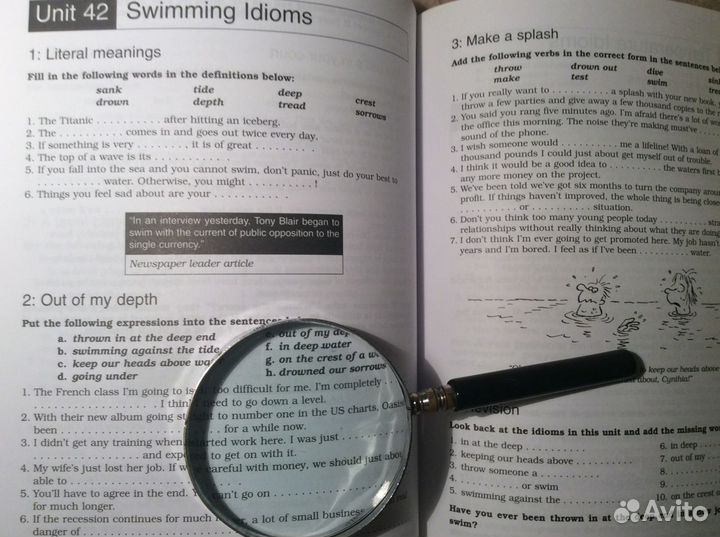 Unit 42 Swimming Idioms
1: Literal meanings
Fill in the following words in the definitions below:
sank tide deep crest
drown depth tread sorrows
1. The Titanic .......... after hitting an iceberg.
2. The .......... comes in and goes out twice every day.
3. If something is very .......... it is of great ..........
4. The top of a wave is its ..........
5. If you fall into the sea and you cannot swim, don't panic, just do your best to
.......... water. Otherwise, you might .......... !
6. Things you feel sad about are your ..........
"In an interview yesterday, Tony Blair began to
swim with the current of public opposition to the
single currency."
Newspaper leader article
2: Out of my depth
Put the following expressions into the sentences
a. thrown in at the deep end
b. swimming against the tide
c. keep our heads above
d. going under
e. out of my
f. in deep water
g. on the crest of a
h. drowned our sorrows
1. The French class I'm going to is too difficult for me. I'm completely
.......... I think I need to go down a level.
2. With their new album going straight to number one in the US charts, Oasis
been .......... for a while now.
3. I didn't get any training when I started work here. I was just ..........
.......... and expected to get on with it.
4. My wife's just lost her job. If we careful with money, we should just about
able to ..........
5. You'll have to agree in the end. You can't go on ..........
for much longer.
6. If the recession continues for much longer, a lot of small
danger of ..........
3: Make a splash
Add the following verbs in the correct form in the sentences
throw drown out dive
make test swim
1. If you really want to .......... a splash with your new book,
throw a few parties and give away a few thousand copies to the
2. You said you rang five minutes ago. I'm afraid there's a lot of
the office this morning. The noise they're making must've
sound of the phone.
3. I wish someone would .......... me a lifeline! With a loan of
thousand pounds I could just about get myself out of trouble.
4. I think it would be a good idea to .......... the waters first
any more money on the project.
5. We've been told we've got six months to turn the company
profit. If things haven't improved, the whole thing is being
.......... or .......... situation.
6. Don't you think too many young people today ..........
relationships without really thinking about what they are
7. I don't think I'm ever going to get promoted here. My job hasn't
years and I'm bored. I feel as if I've been .......... water.
to keep our heads above
about, Cynthia!"
Look back at the idioms in this unit and add the missing
1. in at the deep ..........
2. keeping our heads above ..........
3. throw someone a ..........
4. .......... or swim
5. swimming against the ..........
6. in deep
7. out of my
8. ..........
9. ..........
10. on the crest
Have you ever been thrown in at
swim?
Avito